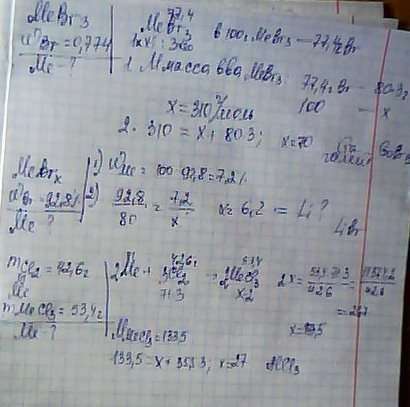 MeBr3
ω Br = 0,774
Me - ?
77,4
MeBr3
в 100г MeBr3 — 77,4г Br
1. М масса в-ва MeBr3: 77,4г Br — 80·3г
100 — x
x = 310 г/моль
2. 310 = x + 80·3; x = 70
MeBrx
ω Br = 92,8%
Me ?
1) ω Me = 100 92,8 = 7,2%
2) 92,8/80 = 7,2/x x = 6,2 = Li?
LiBr
mCl2 = 42,6г
Me
mMeCl3 = 53,4г
Me - ?
42,6г 53,4
2Me + 3Cl2 → 2MeCl3
71·3 x·2
MMeCl3 = 133,5
133,5 = x + 35,5·3; x = 27 AlCl3